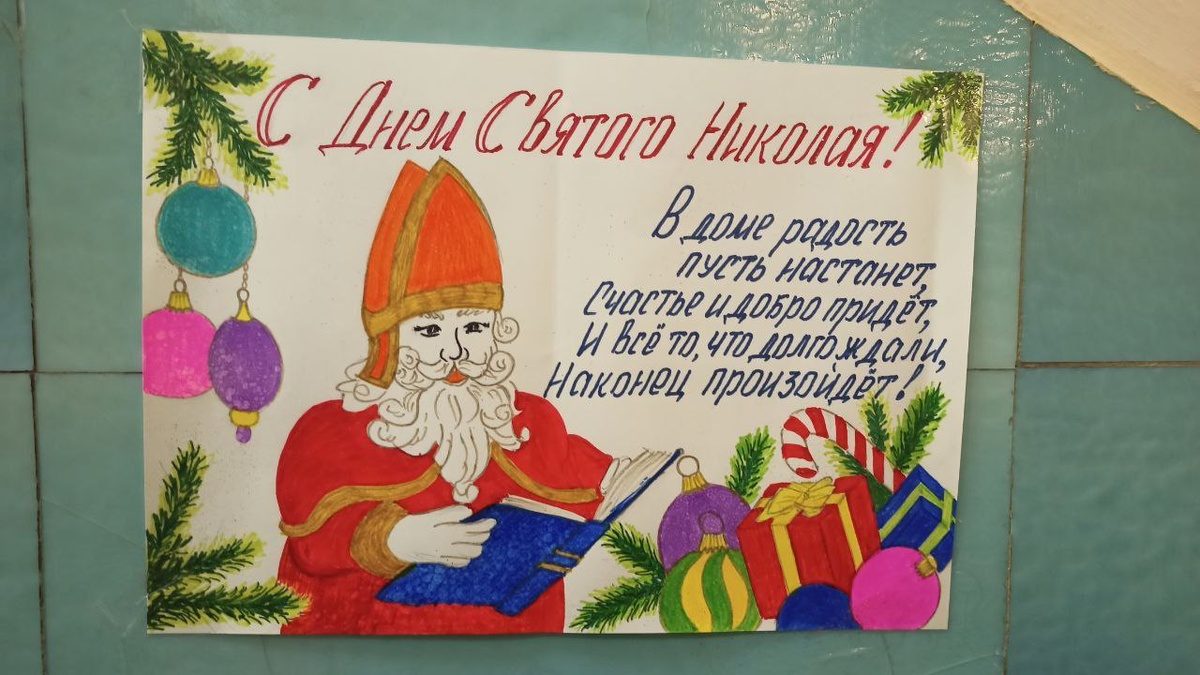 С Днем Святого Николая!
В доме радость
пусть настанет,
Счастье и добро придёт,
И всё то, что долго ждали,
Наконец произойдёт!